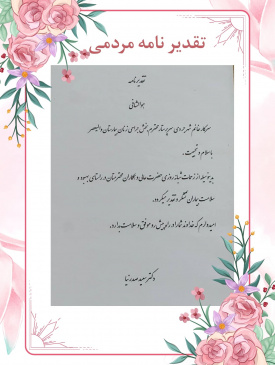 تقدیر نامه مردمی
تقدیرنامه
هوالشافی
سرکار خانم شهرجردی سرپرستار محترم بخش جراحی زنان بیمارستان ولیعصر
با سلام و تحیت،
بدینوسیله از زحمات شبانه روزی حضرت عالی و همکاران محترمتان در راستای بهبود و
سلامت بیماران تشکر و تقدیر میگردد.
امیدوارم که خداوند شما را در راه پیش رو موفق و سلامت بدارد.
دکتر سعید صدرنیا